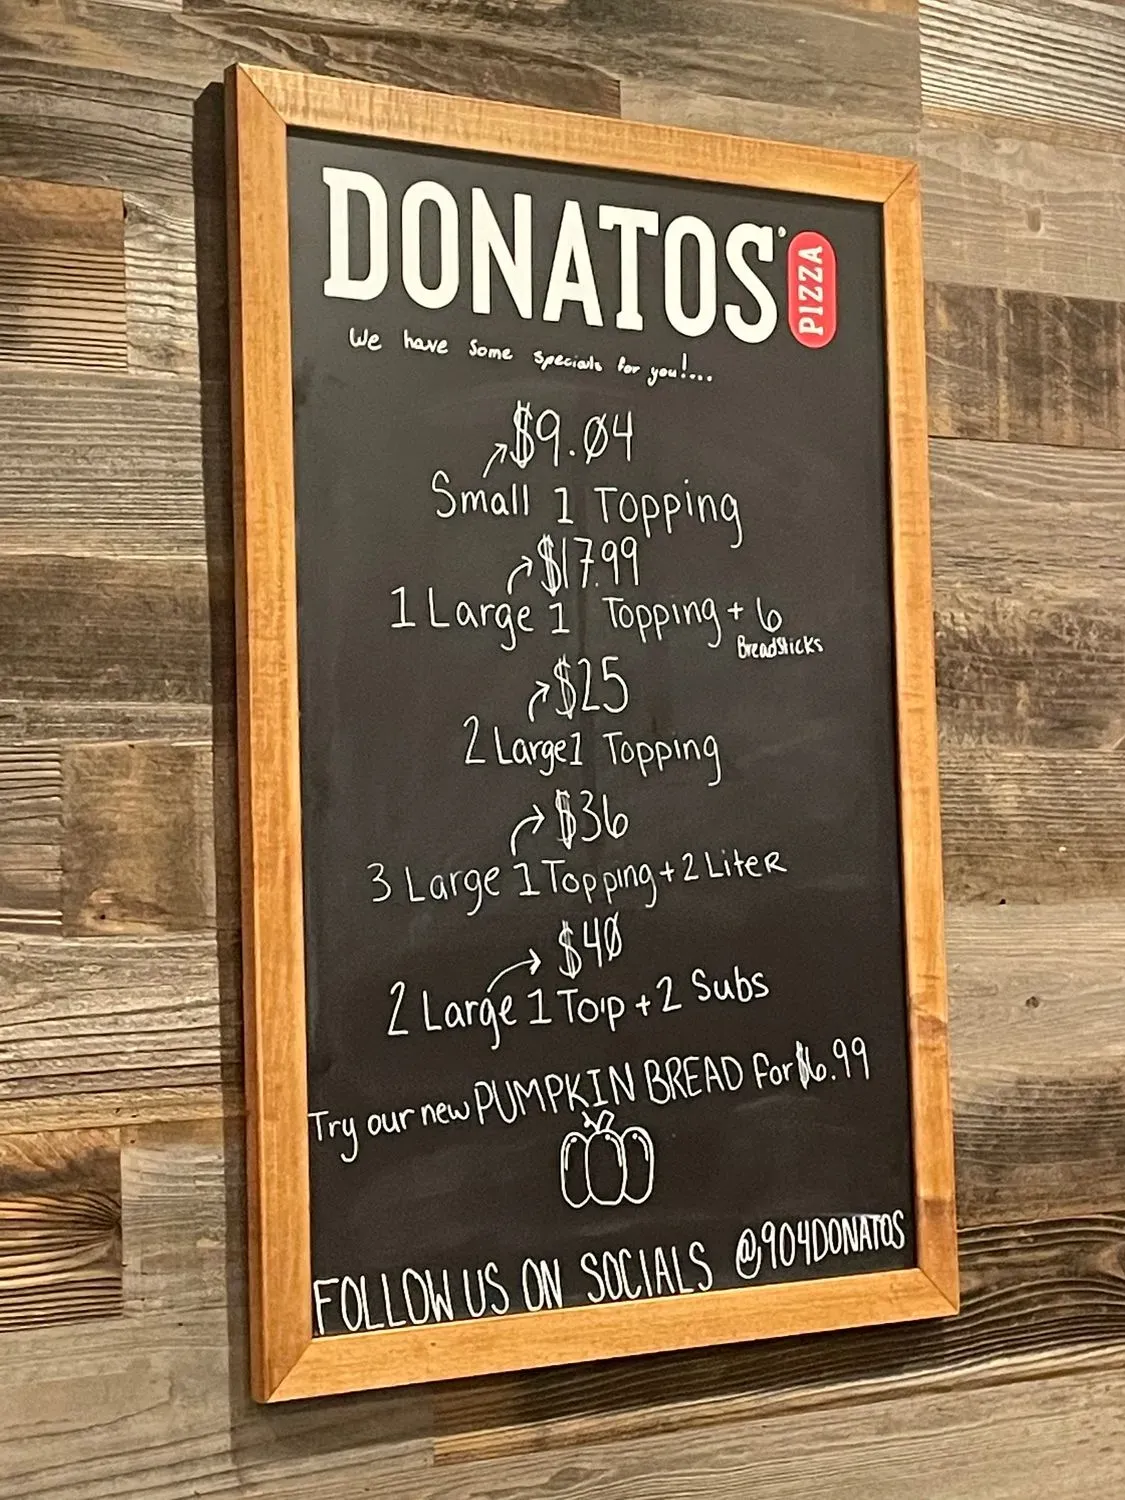 DONATOS PIZZA
We have some specials for you!...
$9.04
Small 1 Topping
$17.99
1 Large 1 Topping + 6
Breadsticks
$25
2 Large 1 Topping
$36
3 Large 1 Topping + 2 Liter
$40
2 Large 1 Toip + 2 Subs
Try our new PUMPKIN BREAD for $6.99
FOLLOW US ON SOCIALS @904DONATOS